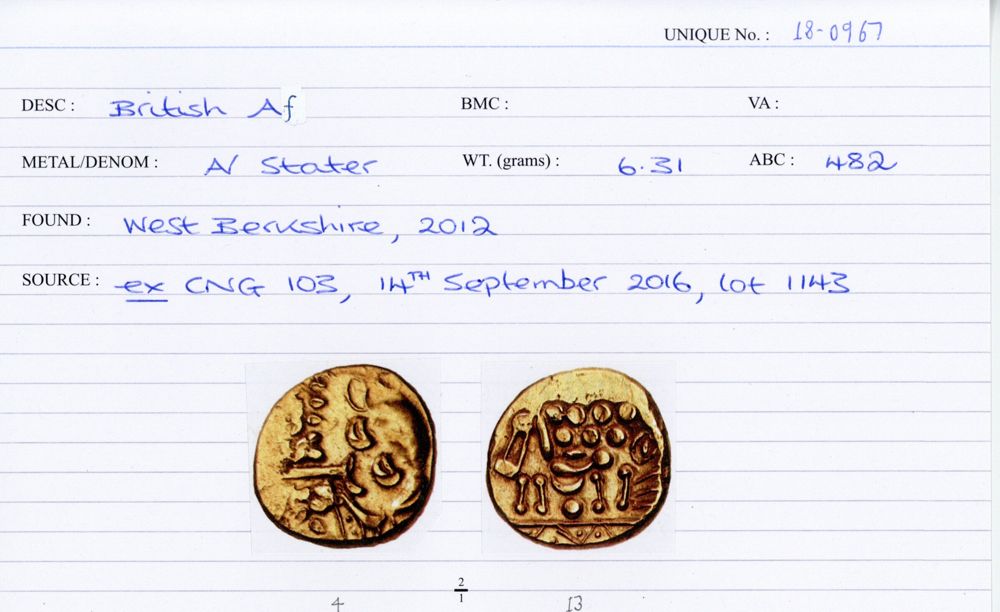 UNIQUE No. : 18-0967
DESC : British Af BMC : VA :
METAL/DENOM : A/ Stater WT. (grams) : 6.31 ABC : 482
FOUND : West Berkshire, 2012
SOURCE : ex CNG 103, 14TH September 2016, lot 1143
2
1
4 13